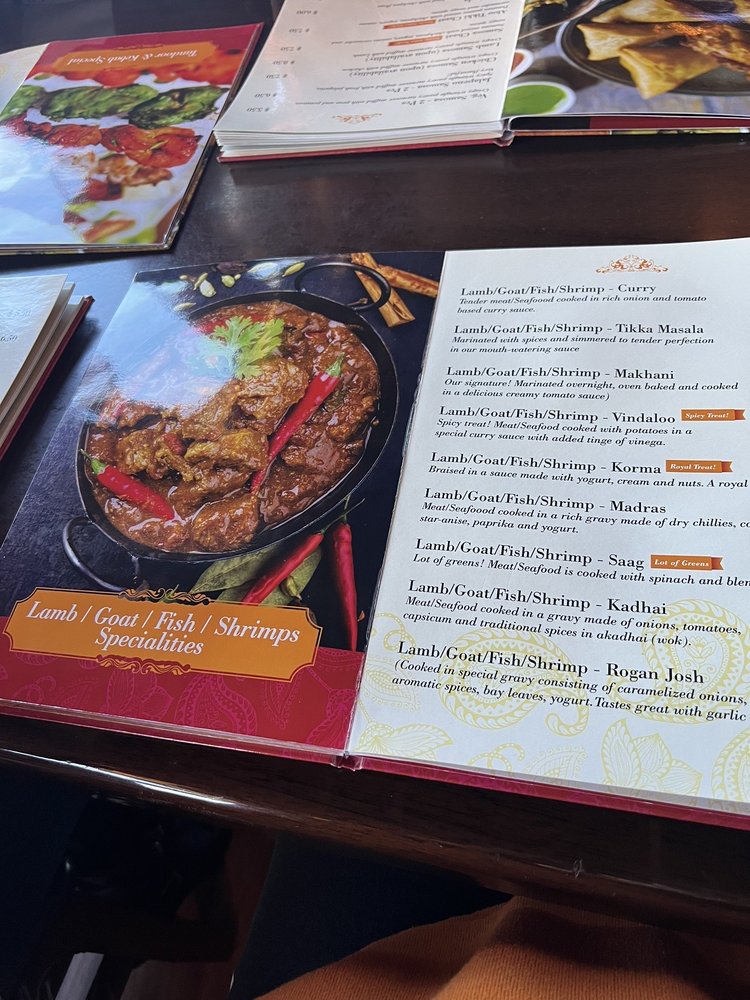 Tandoor & Kebab Special
Veg. Samosa - 2 Pcs
$ 5.50
$ 6.50
Chicken Samosa (upon availability)
$ 7.50
Lamb Samosa (upon availability)
$ 7.50
6.50
Lamb / Goat / Fish / Shrimps
Specialities
Lamb/Goat/Fish/Shrimp - Curry
Tender meat/Seafoood cooked in rich onion and tomato
based curry sauce.
Lamb/Goat/Fish/Shrimp - Tikka Masala
Marinated with spices and simmered to tender perfection
in our mouth-watering sauce
Lamb/Goat/Fish/Shrimp - Makhani
Our signature! Marinated overnight, oven baked and cooked
in a delicious creamy tomato sauce)
Lamb/Goat/Fish/Shrimp - Vindaloo Spicy Treat!
Spicy treat! Meat/Seafood cooked with potatoes in a
special curry sauce with added tinge of vinega.
Lamb/Goat/Fish/Shrimp - Korma Royal Treat!
Braised in a sauce made with yogurt, cream and nuts. A royal
Lamb/Goat/Fish/Shrimp - Madras
Meat/Seafoood cooked in a rich gravy made of dry chillies, co
star-anise, paprika and yogurt.
Lamb/Goat/Fish/Shrimp - Saag Lot of Greens
Lot of greens! Meat/Seafood is cooked with spinach and blen
Lamb/Goat/Fish/Shrimp - Kadhai
Meat/Seafood cooked in a gravy made of onions, tomatoes,
capsicum and traditional spices in akadhai (wok).
Lamb/Goat/Fish/Shrimp - Rogan Josh
(Cooked in special gravy consisting of caramelized onions,
aromatic spices, bay leaves, yogurt. Tastes great with garlic